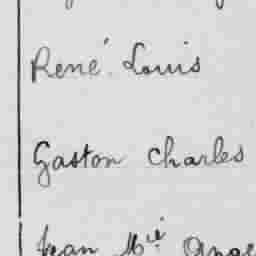 René Louis
Gaston Charles
Jean Mie Ange